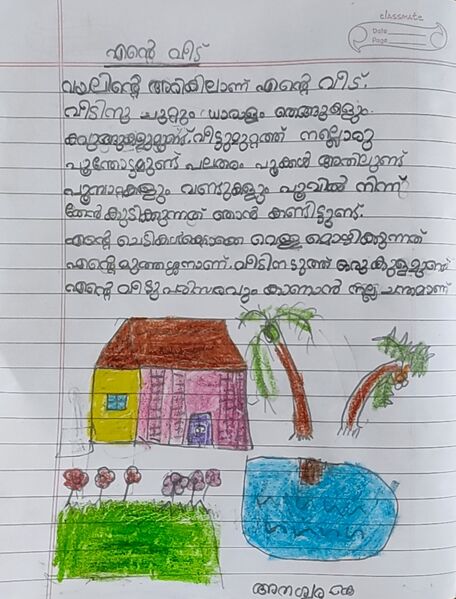 classmate
Date
Page
എന്റെ വീട്
വയലിന്റെ അരികിലാണ് എന്റെ വീട്.
വീടിനു ചുറ്റും ധാരാളം തെങ്ങുകളും
കവുങ്ങുകളുമുണ്ട്. വീട്ടുമുറ്റത്ത് നല്ലൊരു
പൂന്തോട്ടമുണ്ട് പലതരം പൂക്കൾ അതിലുണ്ട്
പൂമ്പാറ്റകളും വണ്ടുകളും പൂവിൽ നിന്ന്
തേൻകുടിക്കുന്നത് ഞാൻ കണ്ടിട്ടുണ്ട്.
എന്റെ ചെടികൾക്കൊക്കെ വെള്ളമൊഴിക്കുന്നത്
എന്റെ മുത്തശ്ശനാണ്. വീടിനടുത്ത് ഒരു കുളമുണ്ട്
എന്റെ വീട്ടുപരിസരവും കാണാൻ നല്ല ചന്തമാണ്
അനശ്വര